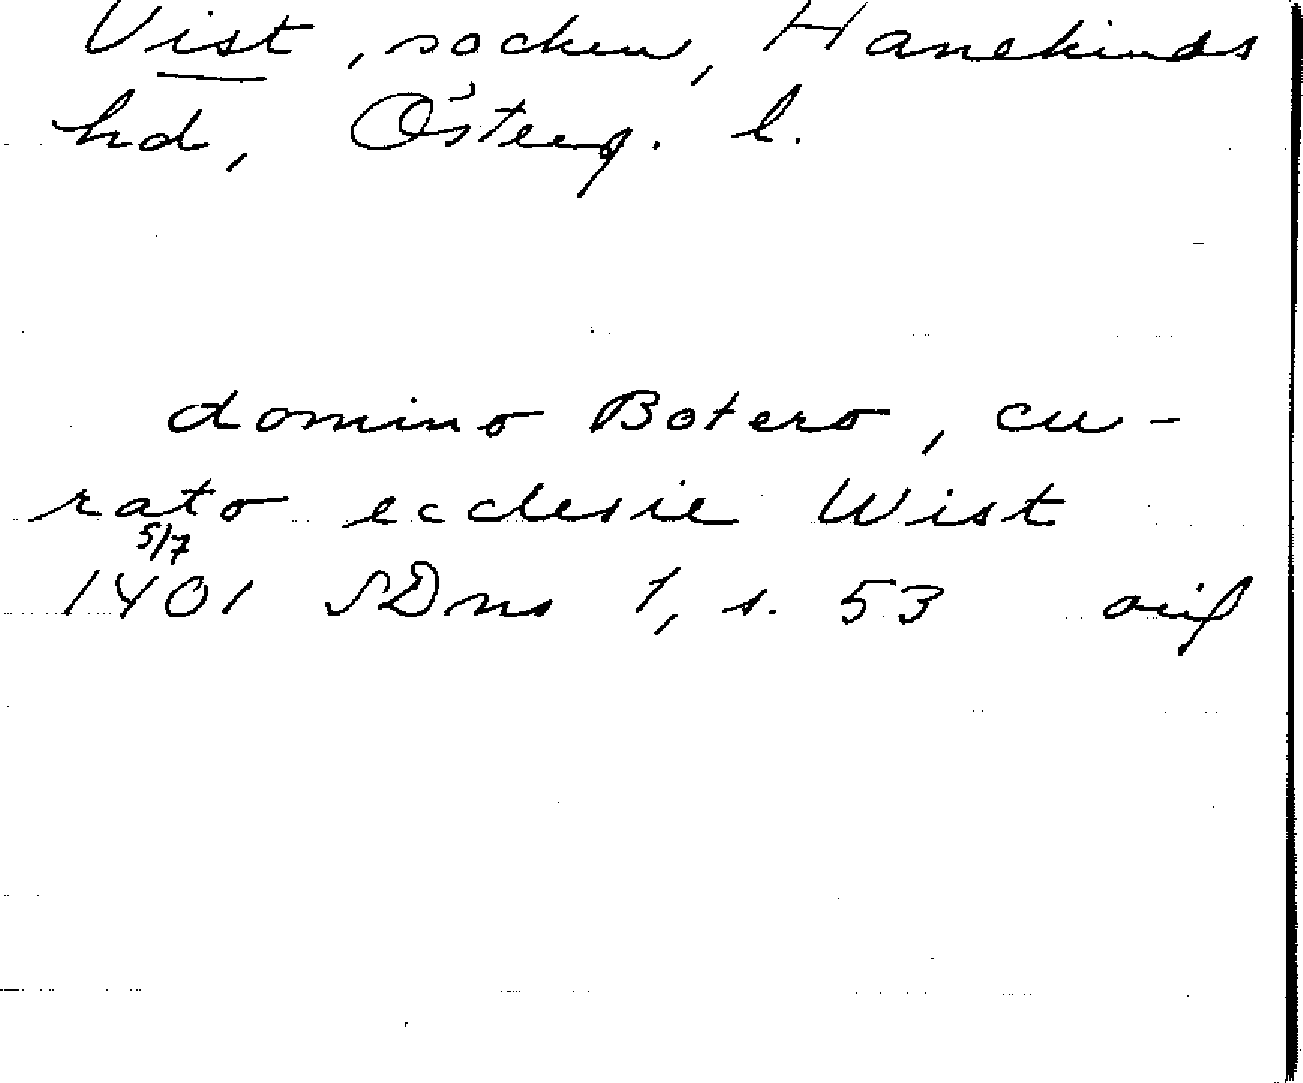 Vist, socken, Hanekinds
hd, Österg. l.
domino Botero, cu-
rato ecclesie Wist
5/7
1401 SDns 1, s. 53 avs